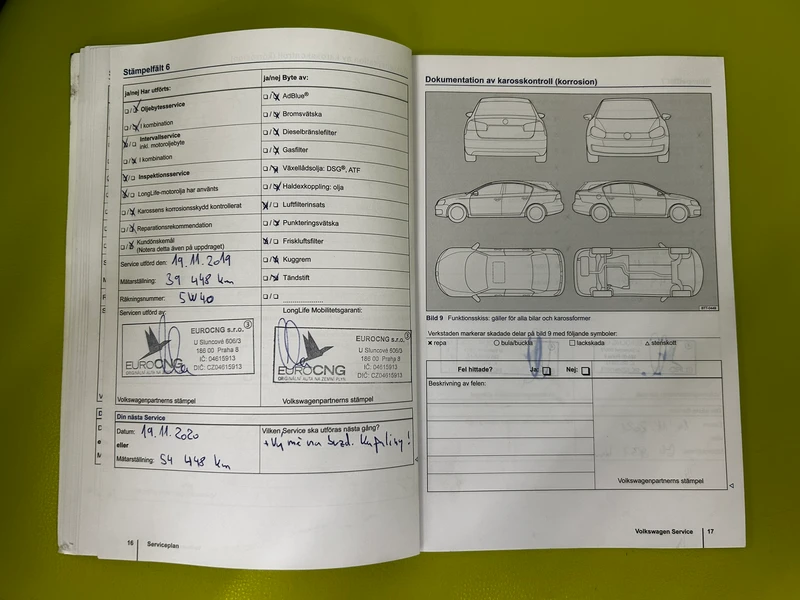 Stämpelfält 6
ja/nej Har utförts:
Oljebytesservice
I kombination
Intervallservice
inkl. motoroljebyte
I kombination
Inspektionsservice
LongLife-motorolja har använts
Karossens korrosionsskydd kontrollerat
Reparationsrekommendation
Kundönskemål
(Notera detta även på uppdraget)
Service utförd den: 19.11.2019
Mätarställning: 39 448 km
Räkningsnummer: 5W40
Servicen utförd av:
EUROCNG s.r.o. 3
U Sluncové 606/3
186 00 Praha 8
IČ: 04615913
DIČ: CZ04615913
EUROCNG
ORIGINÁLNÍ AUTA NA ZEMNÍ PLYN
Volkswagenpartnerns stämpel
ja/nej Byte av:
AdBlue®
Bromsvätska
Dieselbränslefilter
Gasfilter
Växellådsolja: DSG®, ATF
Haldexkoppling: olja
Luftfilterinsats
Punkteringsvätska
Friskluftsfilter
Kuggrem
Tändstift
LongLife Mobilitetsgaranti:
EUROCNG s.r.o. 3
U Sluncové 606/3
186 00 Praha 8
IČ: 04615913
DIČ: CZ04615913
EUROCNG
ORIGINÁLNÍ AUTA NA ZEMNÍ PLYN
Volkswagenpartnerns stämpel
Din nästa Service
Datum: 19.11.2020
eller
Mätarställning: 54 448 km
Vilken Service ska utföras nästa gång?
16 Serviceplan
Dokumentation av karosskontroll (korrosion)
Bild 9 Funktionsskiss: gäller för alla bilar och karossformer
Verkstaden markerar skadade delar på bild 9 med följande symboler:
× repa ○ bula/buckla □ lackskada △ stenskott
Fel hittade? Ja: Nej:
Beskrivning av felen:
Volkswagenpartnerns stämpel
Volkswagen Service 17